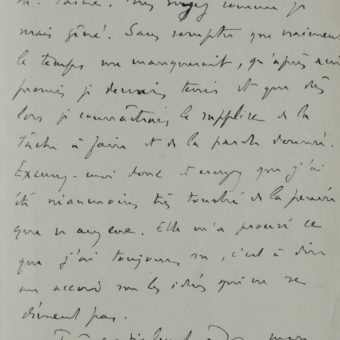 je
mais gêné. Sans compter que vraiment
le temps me manquait, qu'après avoir
promis je devrais tenir et que dès
lors je connaîtrais le supplice de la
tâche à faire et de la parole donnée.
Excusez-moi donc et croyez que j'ai
été néanmoins très touché de la pensée
que vous avez eue. Elle m'a prouvé ce
que j'ai toujours su, c'est à dire
un accord sur les idées qui ne se
dément pas.